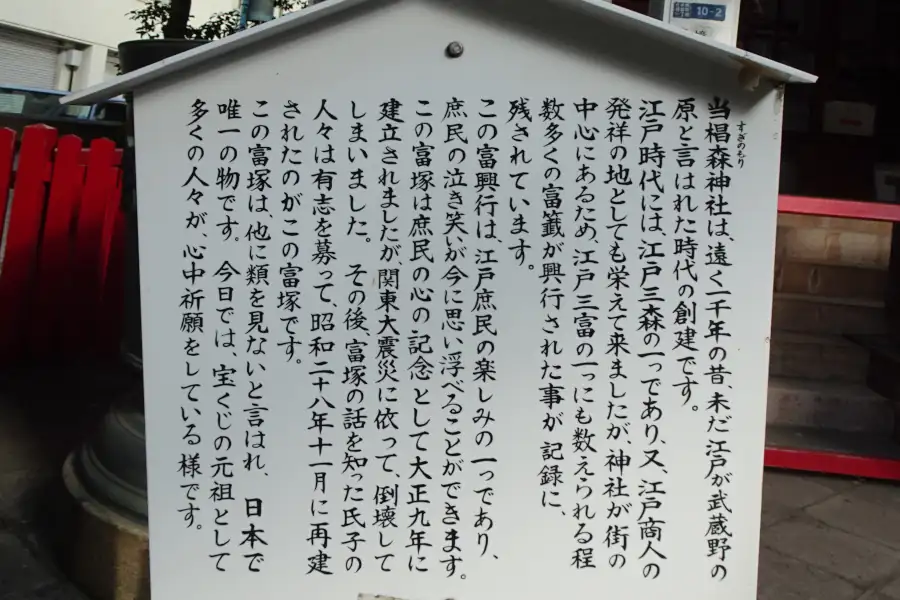 10-2
すぎのもり
当椙森神社は、遠く一千年の昔、未だ江戸が武蔵野の
原と言はれた時代の創建です。
江戸時代には、江戸三森の一つであり、又、江戸商人の
発祥の地としても栄えて来ましたが、神社が街の
中心にあるため、江戸三富の一つにも数えられる程
数多くの富籤が興行された事が 記録に、
残されています。
この富興行は、江戸庶民の楽しみの一つであり、
庶民の泣き笑いが今に思い浮べることができます。
この富塚は庶民の心の記念として大正九年に
建立されましたが、関東大震災に依って、倒壊して
しまいました。 その後、富塚の話を知った氏子の
人々は有志を募って、昭和二十八年十一月に再建
されたのがこの富塚です。
この富塚は、他に類を見ないと言はれ、 日本で
唯一の物です。 今日では、宝くじの元祖として
多くの人々が、心中祈願をしている 様です。